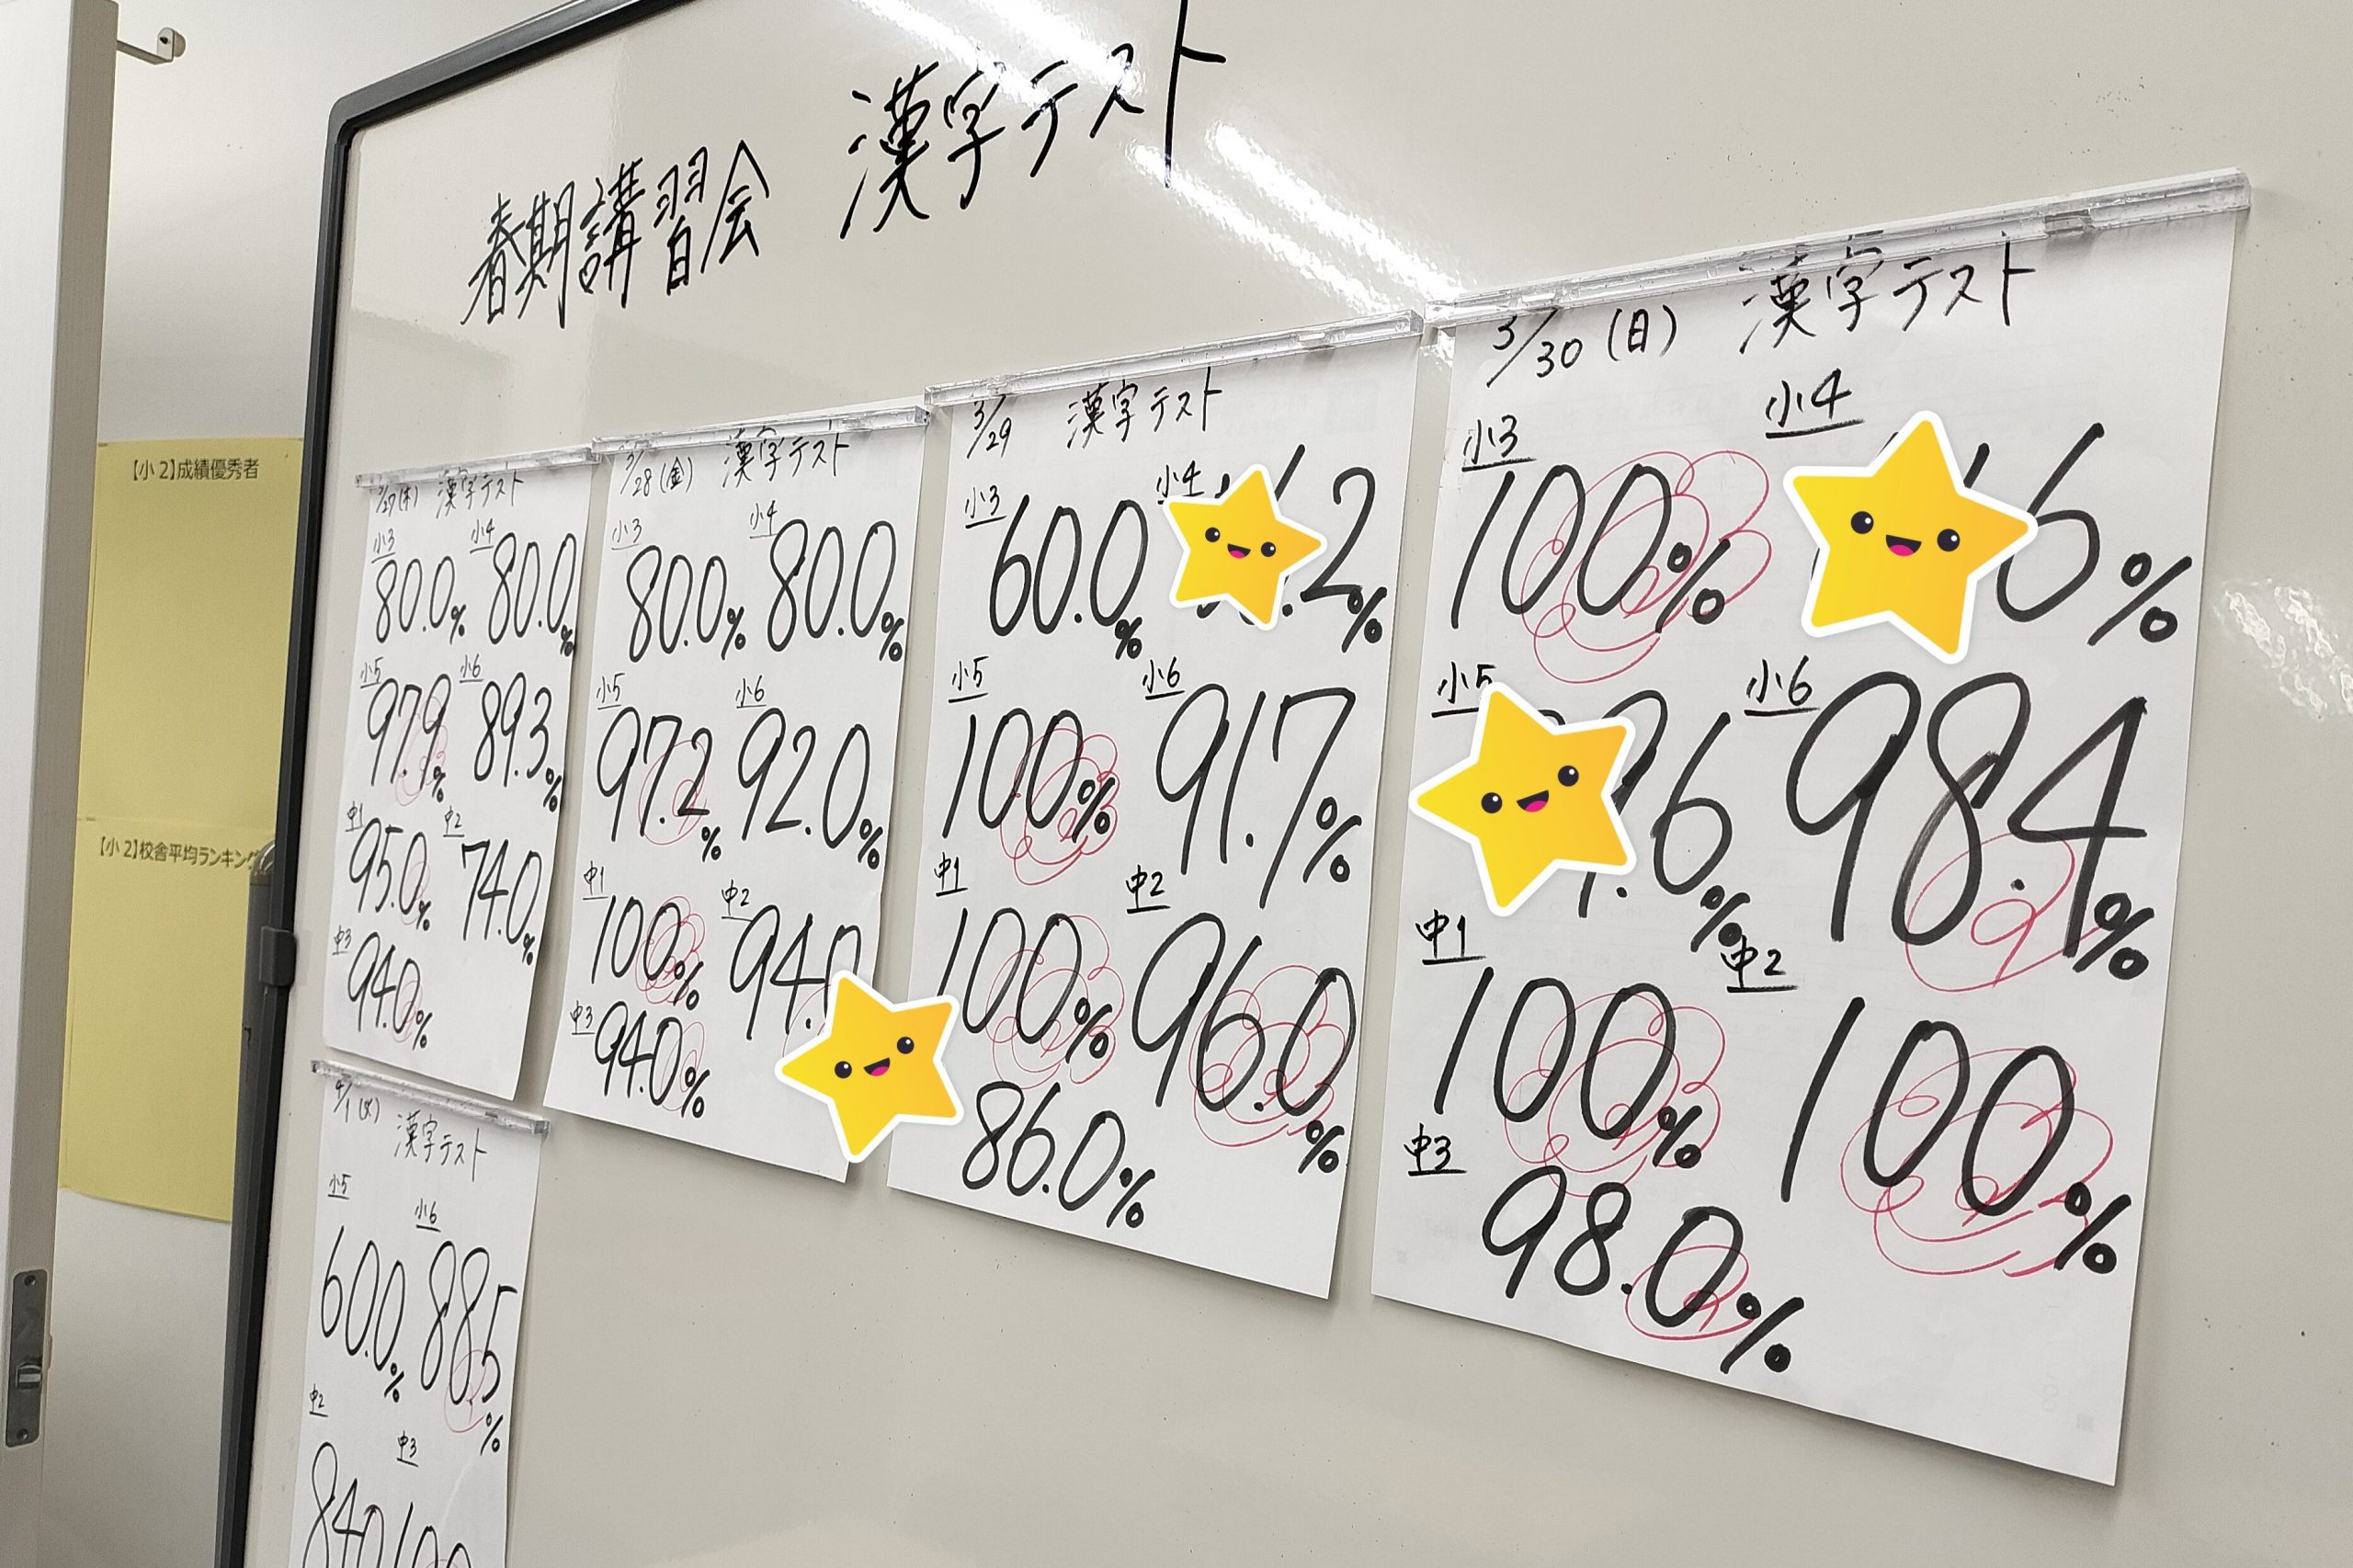 春期講習会 漢字テスト
【小2】成績優秀者
【小2】校舎平均ランキング
3/27(木) 漢字テスト
小3 小4
80.0% 80.0%
小5 小6
97.9% 89.3%
中1 中2
95.0% 74.0%
中3
94.0%
3/28(金) 漢字テスト
小3 小4
80.0% 80.0%
小5 小6
97.2% 92.0%
中1 中2
100% 94.
中3
94.0%
3/29 漢字テスト
小3 小4
60.0% .2%
小5 小6
100% 91.7%
中1 中2
100% 96.0%
86.0%
3/30(日) 漢字テスト
小3 小4
100% 6%
小5 小6
.6% 98.4%
中1 中2
100% 100%
中3
98.0%
4/1(火) 漢字テスト
小5 小6
60.0% 88.5%
中2 中3